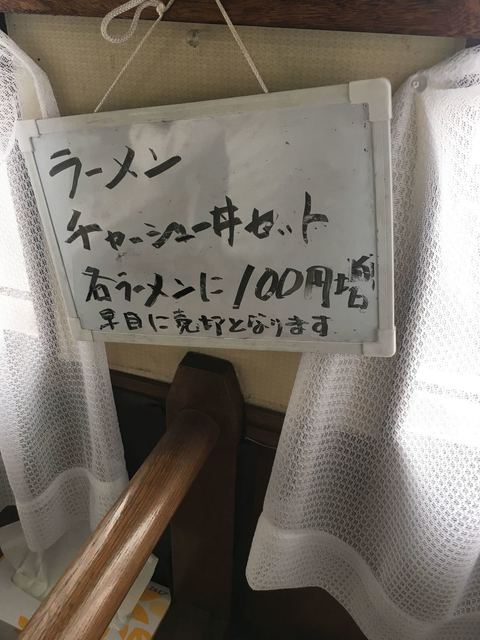 ラーメン
チャーシュー丼セット
各ラーメンに100円増
早目に売切となります